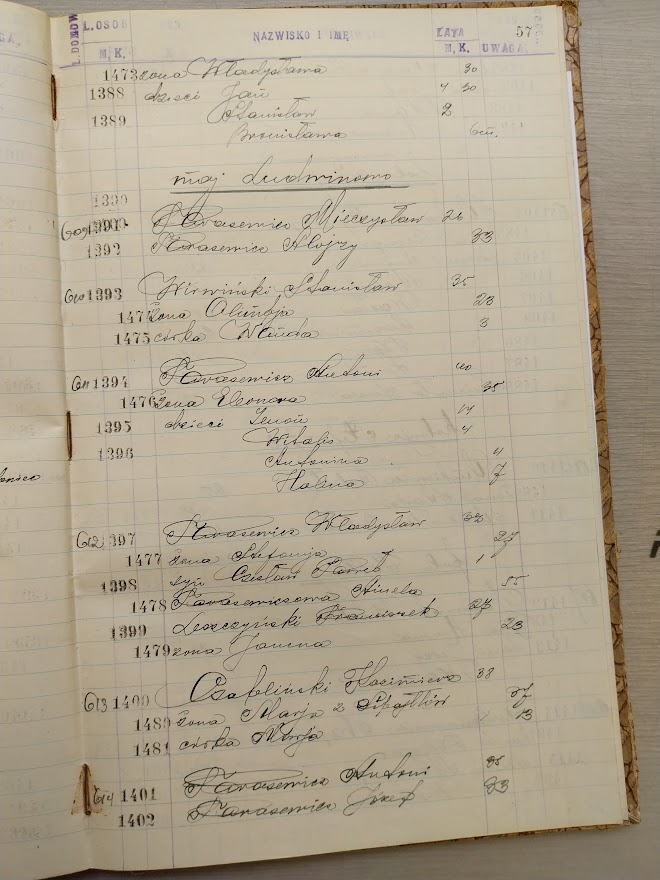 L.DOMÓW L.OSOB NAZWISKO I IMIĘ LATA 57
M. K. M. K. UWAGA.
1473 żona Władysława 30
1388 dzieci Jan 4
1389 Stanisław 2
Bronisława 6m.
maj. Ludwinowo
1390
609 1391 Karasewicz Mieczysław 26
1392 Karasewicz Alojzy 33
610 1393 Wirwiński Stanisław 35
1474 żona Olimpja 23
1475 córka Wanda 3
611 1394 Karasewicz Antoni 40
1476 żona Eleonora 35
1395 dzieci Zenon 14
Witalis 4
1396 Antonina 4
Halina 7
612 1397 Karasewicz Władysław 32
1477 żona Stefanja 27
1398 syn Czesław 1
1478 Karasewiczowa Aniela 55
1399 Leszczyński Franciszek 27
1479 żona Janina 23
613 1400 Kazimierz 38
1480 żona Marja z
1481 córka Marja 13
614 1401 Karasewicz Antoni 35
1402 Karasewicz Józef 33